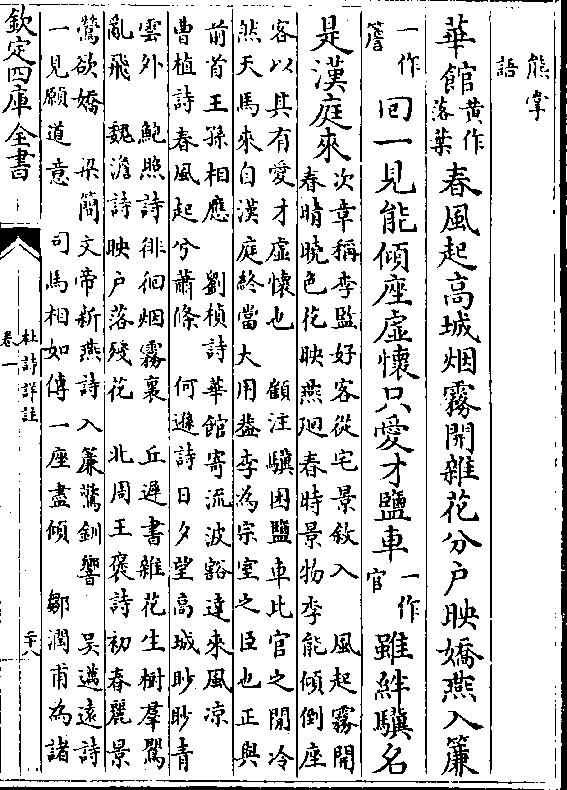 熊掌
語
華館黃作落葉春風起高城烟霧開雜花分户映嬌燕入簾
一作簷回一見能傾座虛懷只愛才鹽車一作官雖絆驥名
是漢庭來次章稱李監好客從宅景敘入　風起霧開
春晴曉色花映燕廻春時景物李能傾倒座
客以其有愛才虛懷也　顧注驥困鹽車比官之閒冷
然天馬來自漢庭終當大用葢李為宗室之臣也正與
前首王孫相應　劉楨詩華館寄流波豁達來風凉
曹植詩春風起兮蕭條　何遜詩日夕望高城眇眇青
雲外　鮑照詩徘徊烟霧裏　丘遲書雜花生樹羣鶯
亂飛　魏澹詩映户落殘花　北周王褒詩初春麗景
鶯欲嬌　梁簡文帝新燕詩入簾驚釧響　吴邁遠詩
一見願道意　司馬相如傳一座盡傾　鄒潤甫為諸
欽定四庫全書
卷一
杜詩詳註
二十八